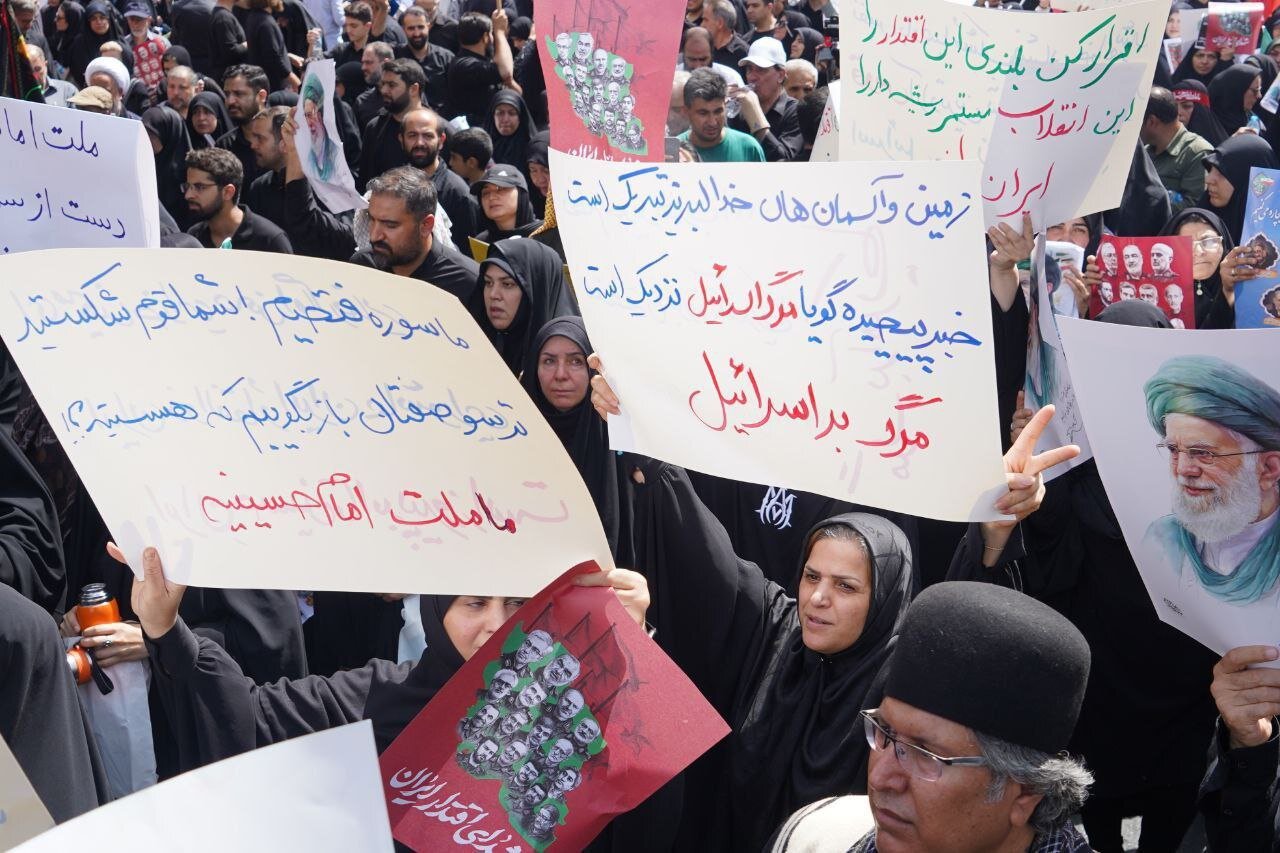 ملت اما
دست از سر
اقرار کن بلندی این اقتدار را
این انقلاب مستمر ریشه دار را
ایران
زمین و آسمان هاں خدا لبریز تبریک است
خبر پیچیده گویا مرگ اسرائیل نزدیک است
مرگ بر اسرائیل
ما سوره فتحیم! شما قوم شکستید
ترسو صفتان باز بگوییم که هستید؟!
ما ملت امام حسینیم
شهدای اقتدار ایران